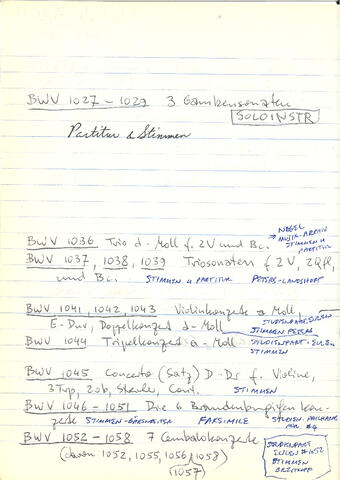 BWV 1027 - 1029 3 Gambensonaten
SOLOINSTR
Partitur & Stimmen
NAGEL
MUSIK-ARCHIV
BWV 1036 Trio d-Moll f. 2V und Bc. STIMMEN U
PARTITUR
BWV 1037, 1038, 1039 Triosonaten f 2V, 2Qfl,
und Bc. STIMMEN U PARTITUR PETERS-LANDSHOFF
BWV 1041, 1042, 1043 Violinkonzerte a Moll,
E-Dur, Doppelkonzert d-Moll
STIMMEN PETERS
BWV 1044 Tripelkonzert a-Moll STUDIENPART-EULEN
STIMMEN
BWV 1045 Concerto (Satz) D-Dr f. Violine,
3Trp, 2ob, Streicher, Cont. STIMMEN
BWV 1046 - 1051 Die 6 Brandenburgischen Kon-
zerte STIMMEN-BÄRENREITER FAKSIMILE
# 4
BWV 1052 - 1058 7 Cembalokonzerte
(davon 1052, 1055, 1056, 1058)
(1057)
STUDIENPART
EULEN #1052
STIMMEN
BREITKOPF